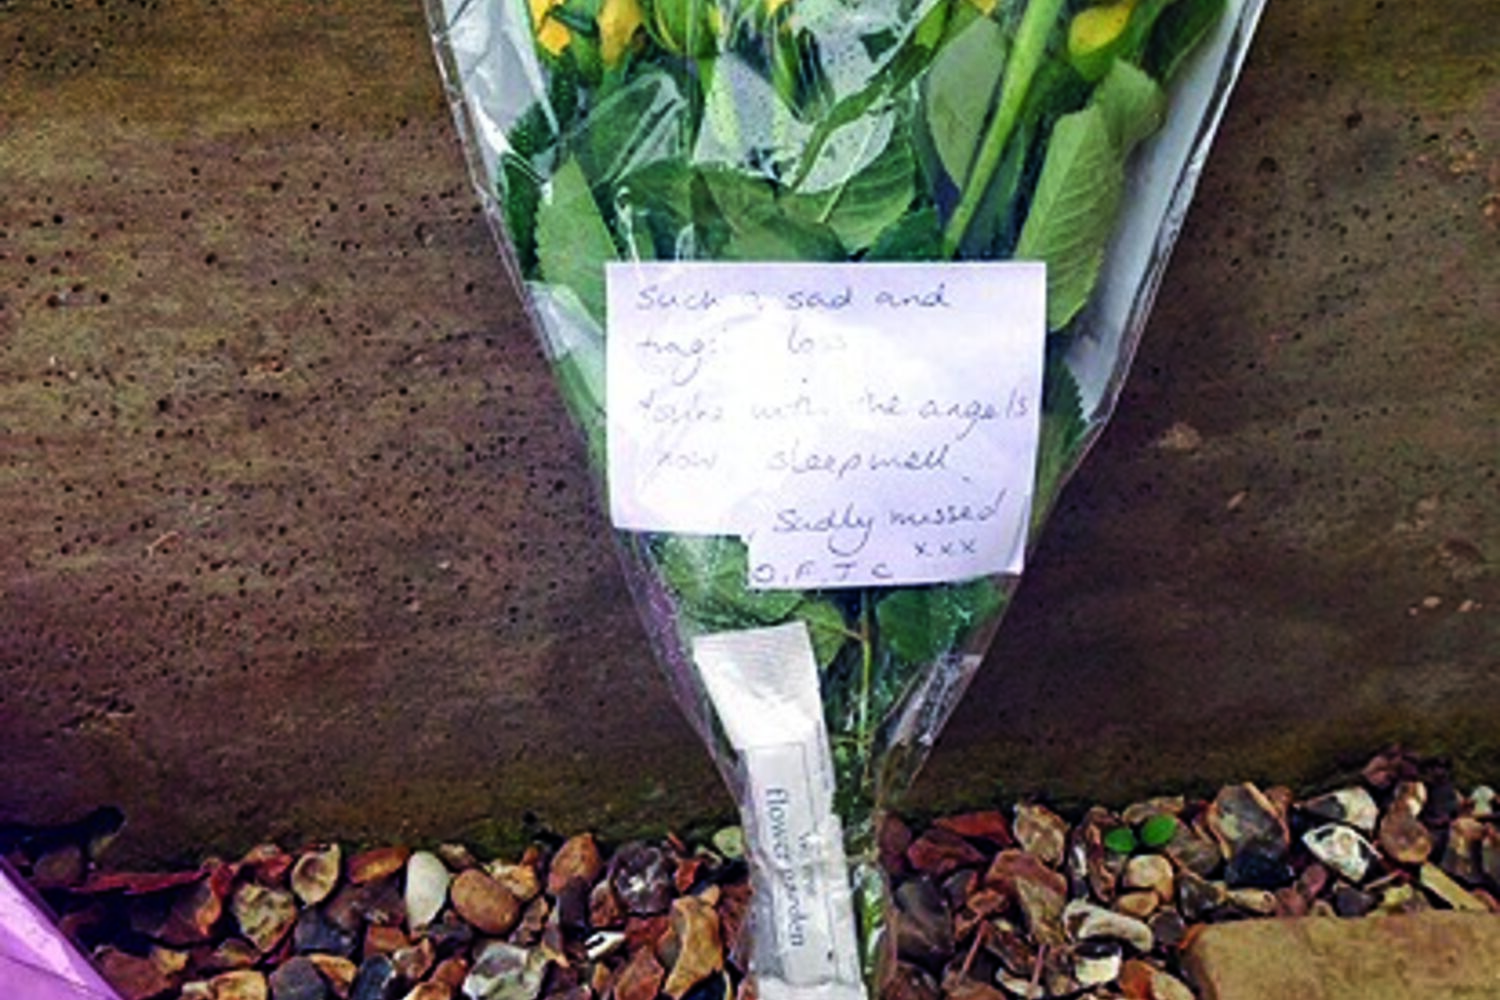 Such a sad and
tragic loss
with the angels
now sleepwell
Sadly missed
xxx
O.F.T.C
flower garden